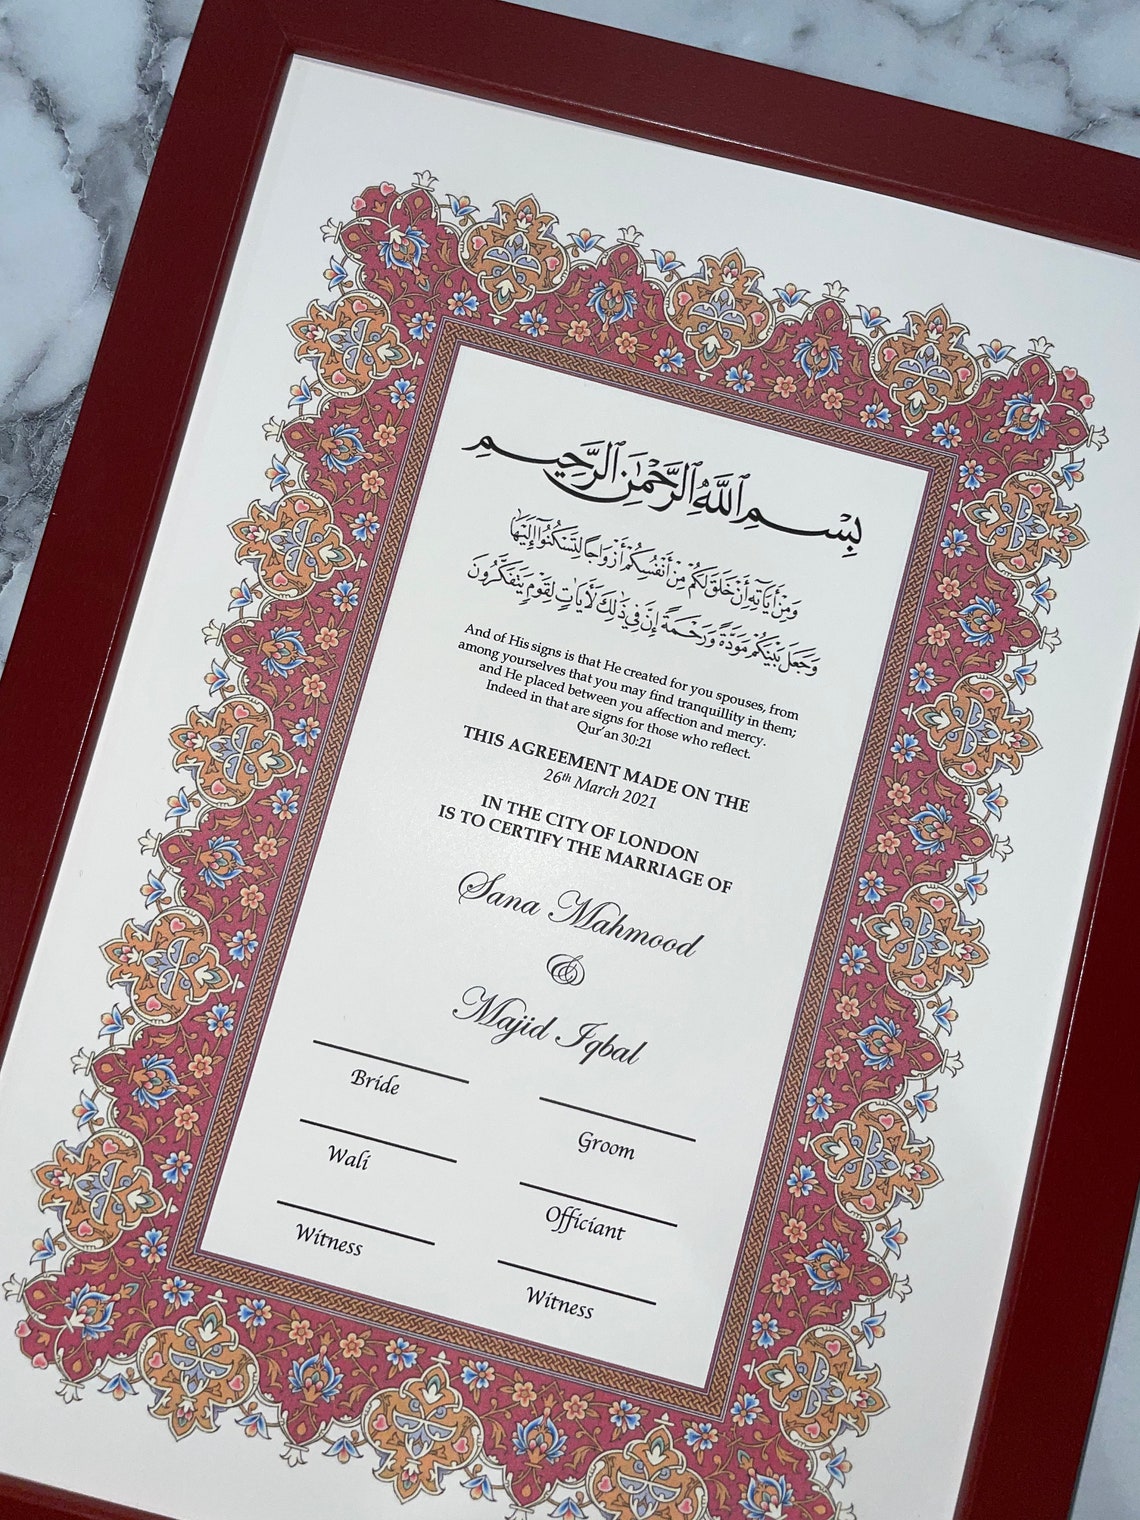 بِسْمِ ٱللَّهِ ٱلرَّحْمَٰنِ ٱلرَّحِيمِ
وَمِنْ أَيَاتِهِ أَنْ خَلَقَ لَكُمْ مِنْ أَنْفُسِكُمْ أَزْوَاجًا لِتَسْكُنُوا إِلَيْهَا
وَجَعَلَ بَيْنَكُمْ مَوَدَّةً وَرَحْمَةً إِنَّ فِي ذَٰلِكَ لَأَيَاتٍ لِقَوْمٍ يَتَفَكَّرُونَ
And of His signs is that He created for you spouses, from
among yourselves that you may find tranquillity in them;
and He placed between you affection and mercy.
Indeed in that are signs for those who reflect.
Qur'an 30:21
THIS AGREEMENT MADE ON THE
26th March 2021
IN THE CITY OF LONDON
IS TO CERTIFY THE MARRIAGE OF
Sana Mahmood
&
Majid Iqbal
Bride
Groom
Wali
Officiant
Witness
Witness